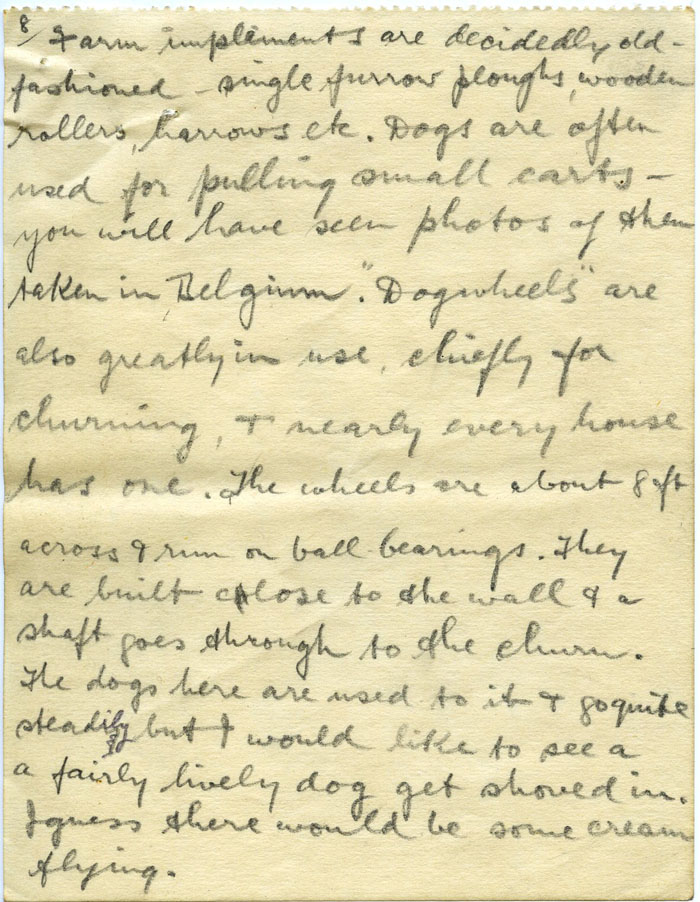 8/ Farm implements are decidedly old-
fashioned - single furrow ploughs, wooden
rollers, harrows etc. Dogs are often
used for pulling small carts -
you will have seen photos of them
taken in Belgium. "Dogwheels" are
also greatly in use, chiefly for
churning, & nearly every house
has one. The wheels are about 8 ft
across & run on ball-bearings. They
are built close to the wall & a
shaft goes through to the churn.
The dogs here are used to it & go quite
steadily but I would like to see a
a fairly lively dog get shoved in.
I guess there would be some cream
flying.